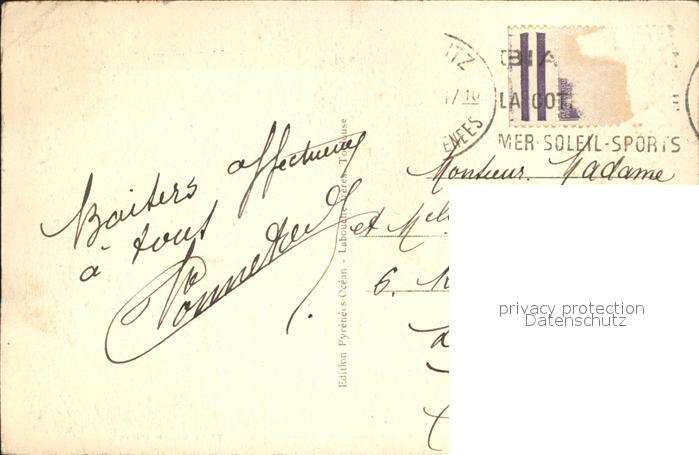 ITZ
17 10
ENEES
BIA
LA COT
MER-SOLEIL-SPORTS
Baisers affectueux
à tous
Edition Pyrénées-Océan - Labouche Frères, Toulouse
Monsieur. Madame
et Mel
6.
privacy protection
Datenschutz